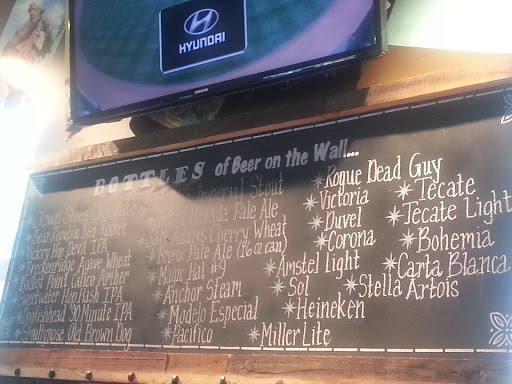 HYUNDAI
SAMSUNG
BOTTLES of Beer on the Wall...
Clown Shoes
Bear Republic Red Rocket
Victory Hop Devil IPA
Breckenridge Agave Wheat
Ballast Point Calico Amber
Sweetwater Hop Hash IPA
Dogfishhead 90 Minute IPA
Smuttynose Old Brown Dog
Imperial Stout
Nevada Pale Ale
Sam Adams Cherry Wheat
Bronx Pale Ale (16 oz can)
Magic Hat #9
Anchor Steam
Modelo Especial
Pacifico
Rogue Dead Guy
Victoria
Duvel
Corona
Amstel Light
Sol
Heineken
Miller Lite
Tecate
Tecate Light
Bohemia
Carta Blanca
Stella Artois